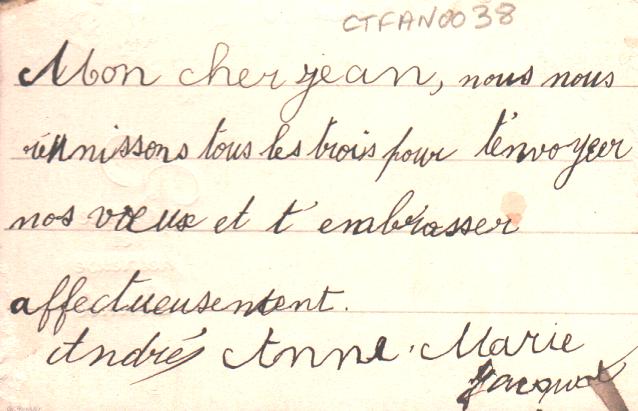 CTFAN0038
Mon cher jean, nous nous
réunissons tous les trois pour t'envoyer
nos vœux et t'embrasser
affectueusement.
André Anne-Marie